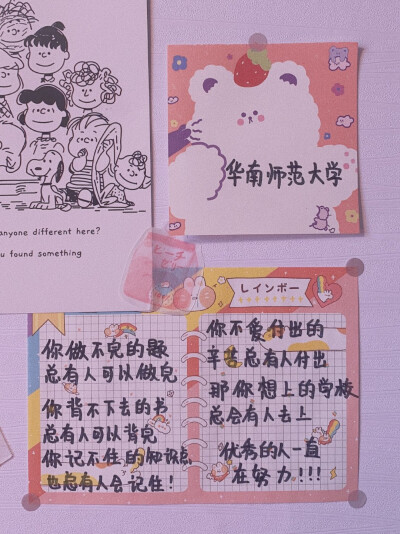 anyone different here?
u found something
华南师范大学
ピーチ
レインボー
你做不完的题
总有人可以做完
你背不下去的书
总有人可以背完
你记不住的知识点
也总有人会记住!
你不愿付出的
辛苦总有人付出
那你想上的学校
总会有人去上
优秀的人一直
在努力!!!